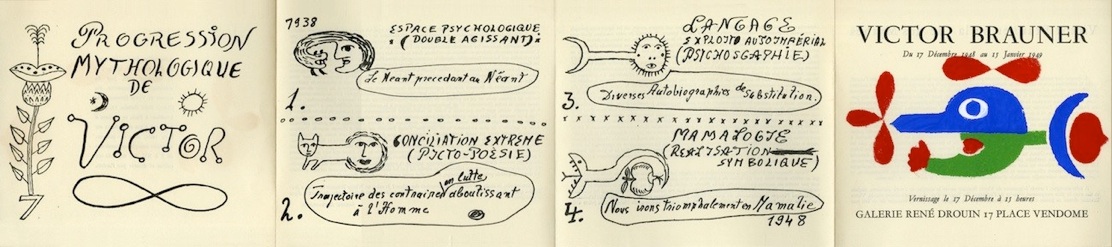 PROGRESSION
MYTHOLOGIQUE
DE
VICTOR
1938
ESPACE PSYCHOLOGIQUE
(DOUBLE AGISSANT)
Le Neant precedant au Néant
1.
CONCILIATION EXTREME
(PICTO-POESIE)
en lutte
Trajectoire des contraires aboutissant
à l'Homme
2.
LANGAGE
EXPLOITO AUTOIMPÉRIAL
(PSYCHOGRAPHIE)
Diverses Autobiographies de Substitution.
3.
MAMALOGIE
(REALISATION
SYMBOLIQUE)
Nous irons triomphalement en Mamalie
4.
1948
VICTOR BRAUNER
Du 17 Décembre 1948 au 17 Janvier 1949
Vernissage le 17 Décembre à 15 heures
GALERIE RENÉ DROUIN 17 PLACE VENDOME